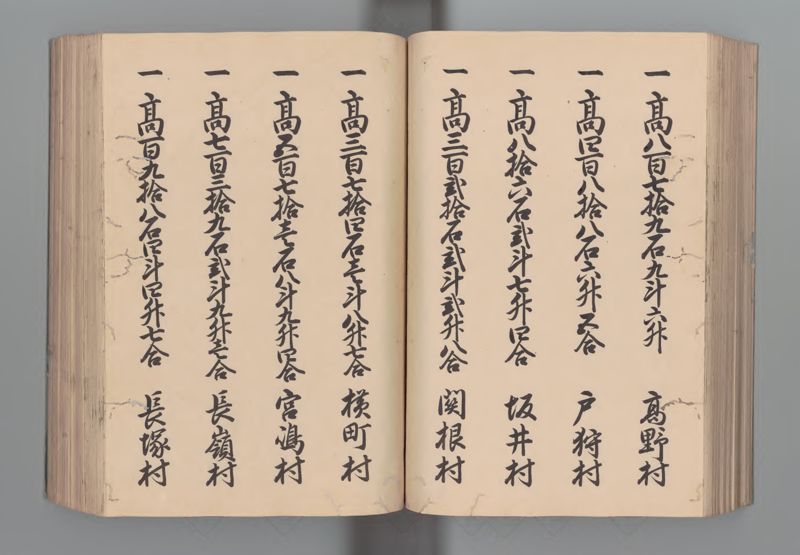 一 高八百七拾九石九斗六升 高野村
一 高四百八拾八石六升五合 戸狩村
一 高八拾六石弐斗七升四合 坂井村
一 高三百弐拾石弐斗弐升八合 関根村
一 高三百七拾四石壱斗八升七合 横町村
一 高五百七拾壱石八斗九升四合 宮嶋村
一 高七百三拾九石弐斗九升壱合 長嶺村
一 高百九拾八石四斗四升七合 長塚村